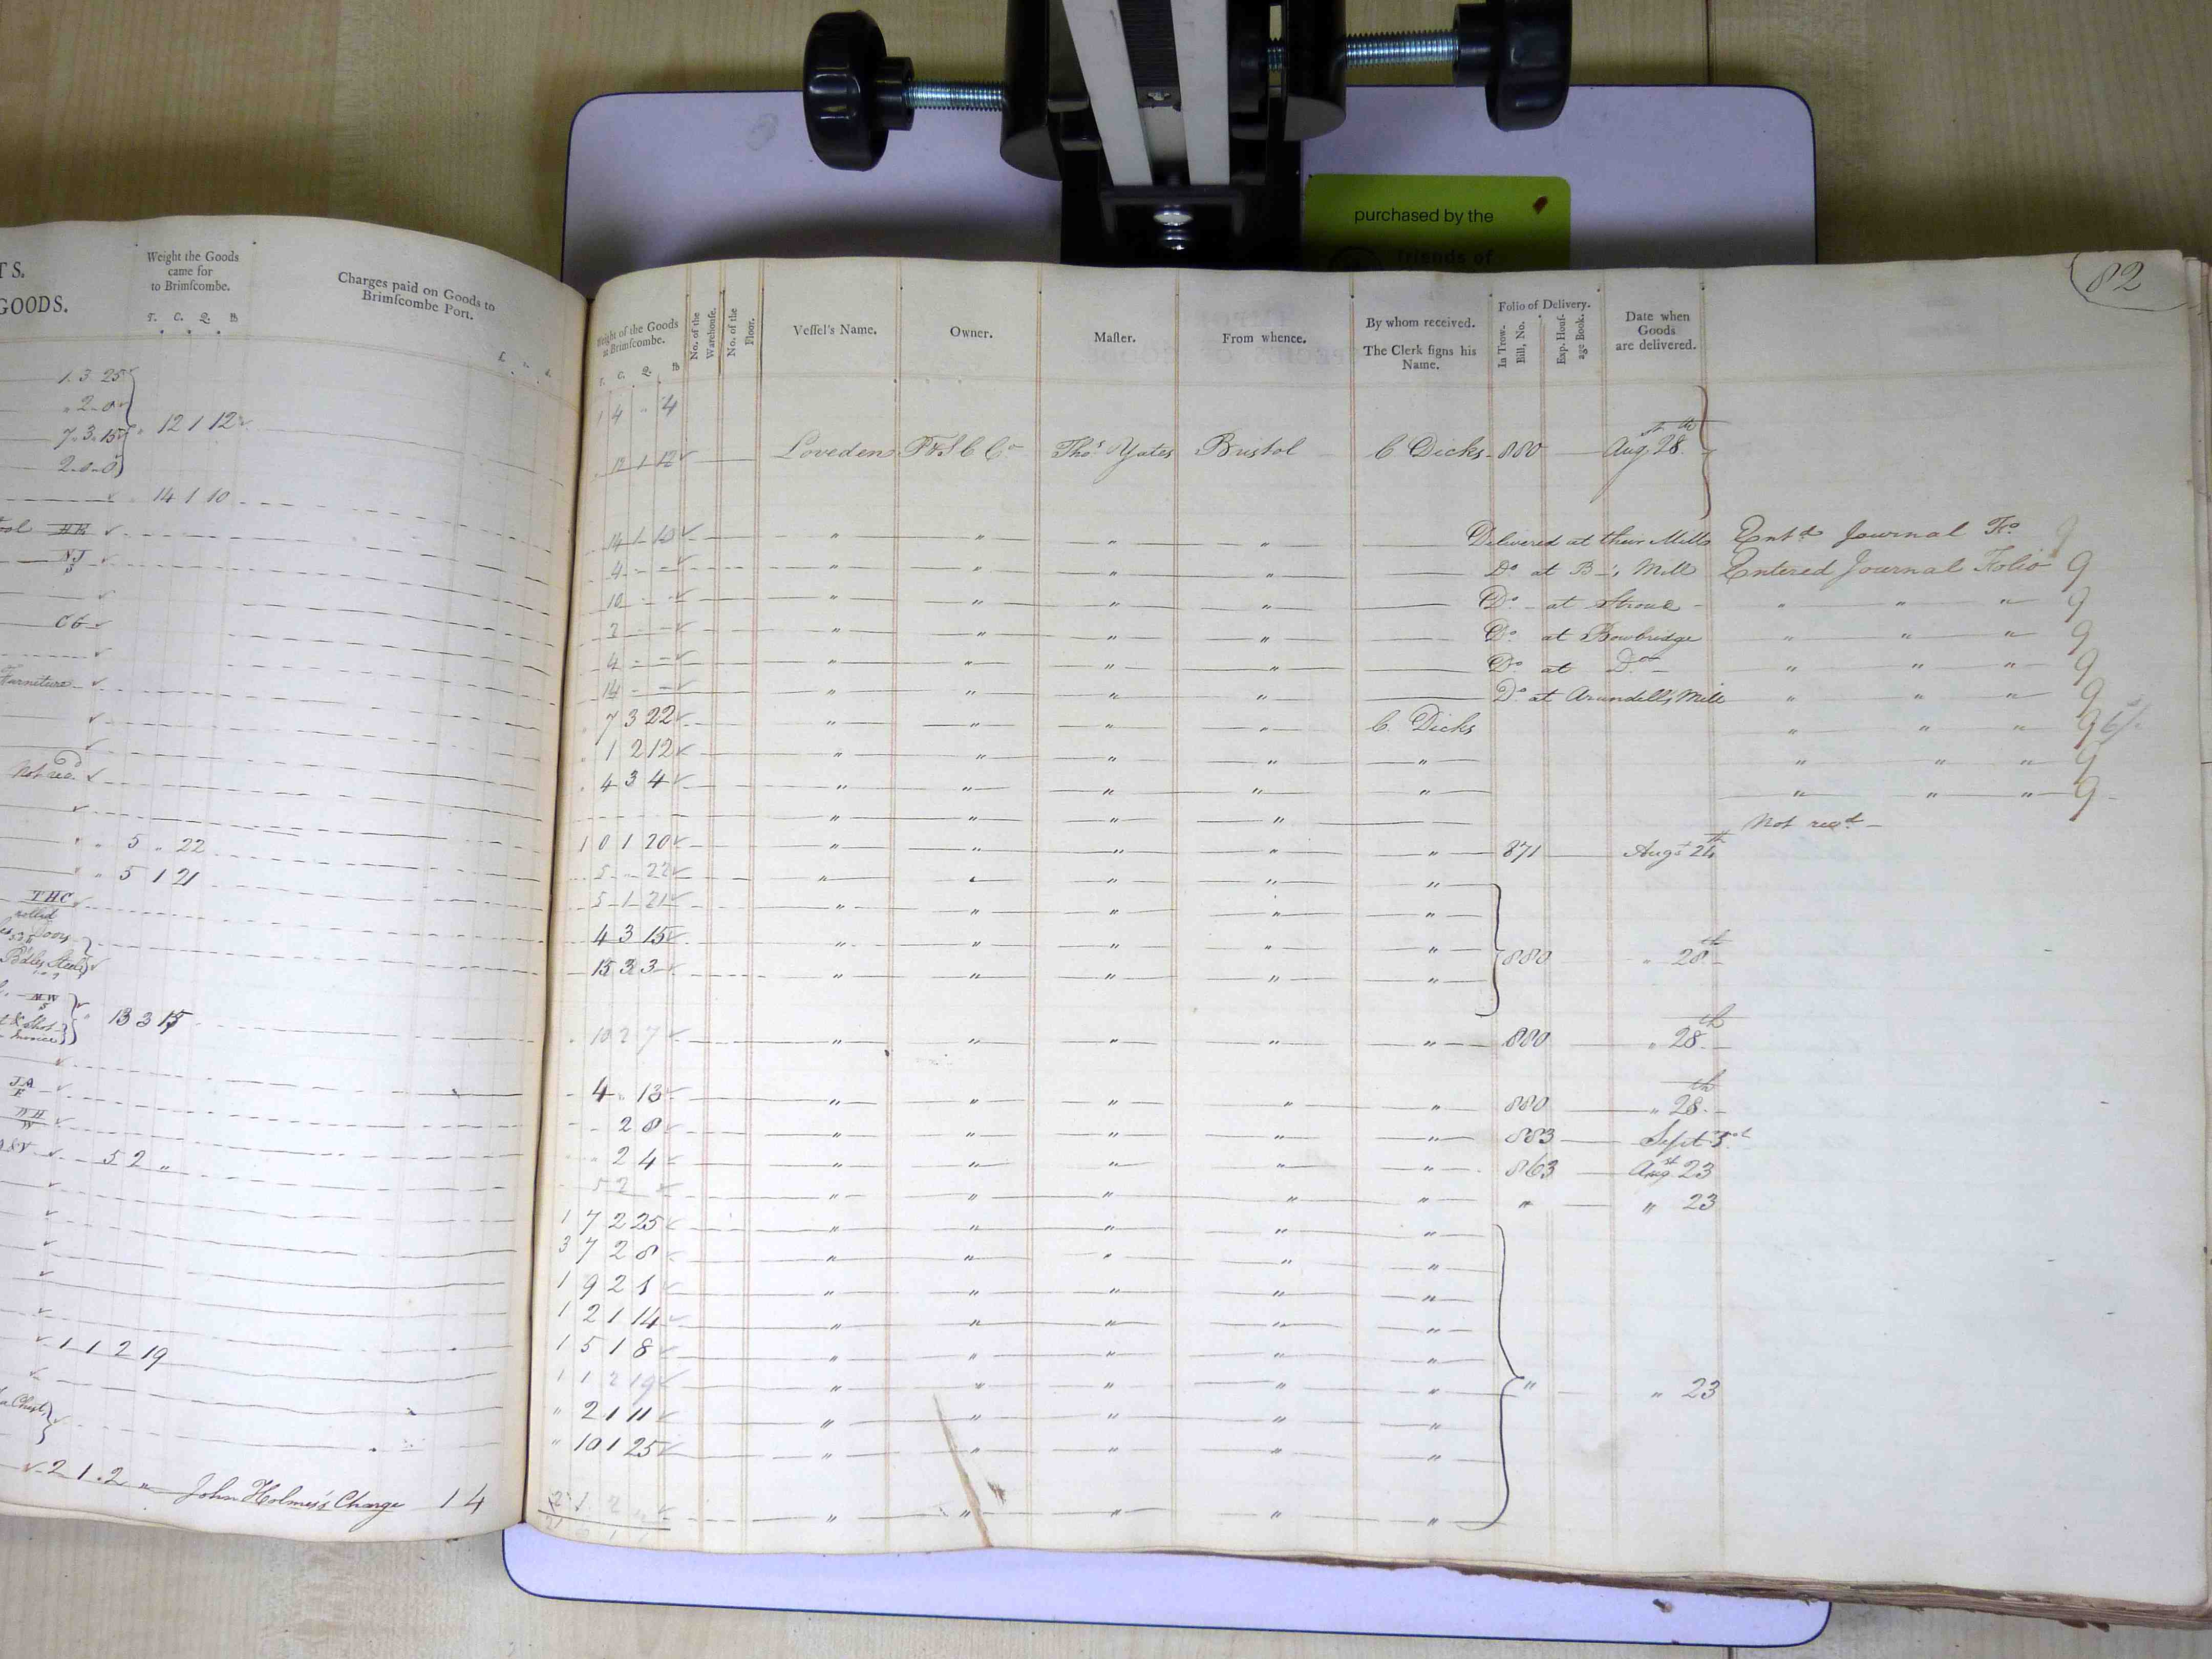 purchased by the
Friends of
TS.
GOODS.
Weight the Goods
came for
to Brimſcombe.
T. C. Q. lb
Charges paid on Goods to
Brimſcombe Port.
1. 3 25
" 2 - 0
7. 3. 15
2 - 0 - 0
12 1 12
14 1 10
NJ
CG
Furniture
Not rec.d
5 " 22
5 1 21
THC
rolled
MW
13 3 15
JA
5 2 "
1 1 2 19
a Chest
2 1. 2 " John Holmes's Charge 1 4
82
Weight of the Goods
at Brimſcombe.
T. C. Q. lb
No. of the
Warehouſe.
No. of the
Floor.
Veſſel's Name.
Owner.
Maſter.
From whence.
By whom received.
The Clerk ſigns his
Name.
Folio of Delivery.
In Trow.
Bill, No.
Exp. Houſ-
age Book.
Date when
Goods
are delivered.
1 4 " 4
12 1 12 Loveden Thos Yates Bristol C Dicks 880 Aug 28th
14 1 10 " " " " Delivered at their Mills Entd Journal Fo. 9
4 - - " " " " Do at B-'s Mill Entered Journal Folio 9
10 - - " " " " Do at " " " 9
2 - - " " " " Do at Bowbridge " " " 9
4 - - " " " " Do at Do " " " 9
14 - - " " " " Do at Arundells Mill " " " 9
7 3 22 " " " " C. Dicks " " " 9
1 2 12 " " " " " " " " 9
4 3 4 " " " " " " " " 9
" " " " Not recd
1 0 1 20 " " " " " 871 Augst 24th
5 " 22 " " " " "
5 1 21 " " " " "
4 3 15 " " " " " 880 " 28th
15 3 3 " " " " "
10 2 7 " " " " " 880 " 28th
4 " 13 " " " " " 880 " 28th
2 8 " " " " " 883 Sept 3rd
2 4 " " " " " 863 Augst 23
5 2 " " " " " " " " 23
1 7 2 25 " " " " "
3 7 2 8 " " " " "
1 9 2 1 " " " " "
1 2 1 14 " " " " "
1 5 1 8 " " " " "
1 1 2 19 " " " " " " " 23
" 2 1 11 " " " " "
" 10 1 25 " " " " "
2 1 2 " " " " " "